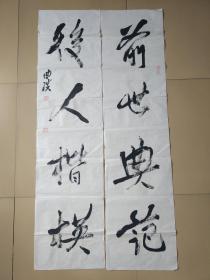 前世典范
後人楷模